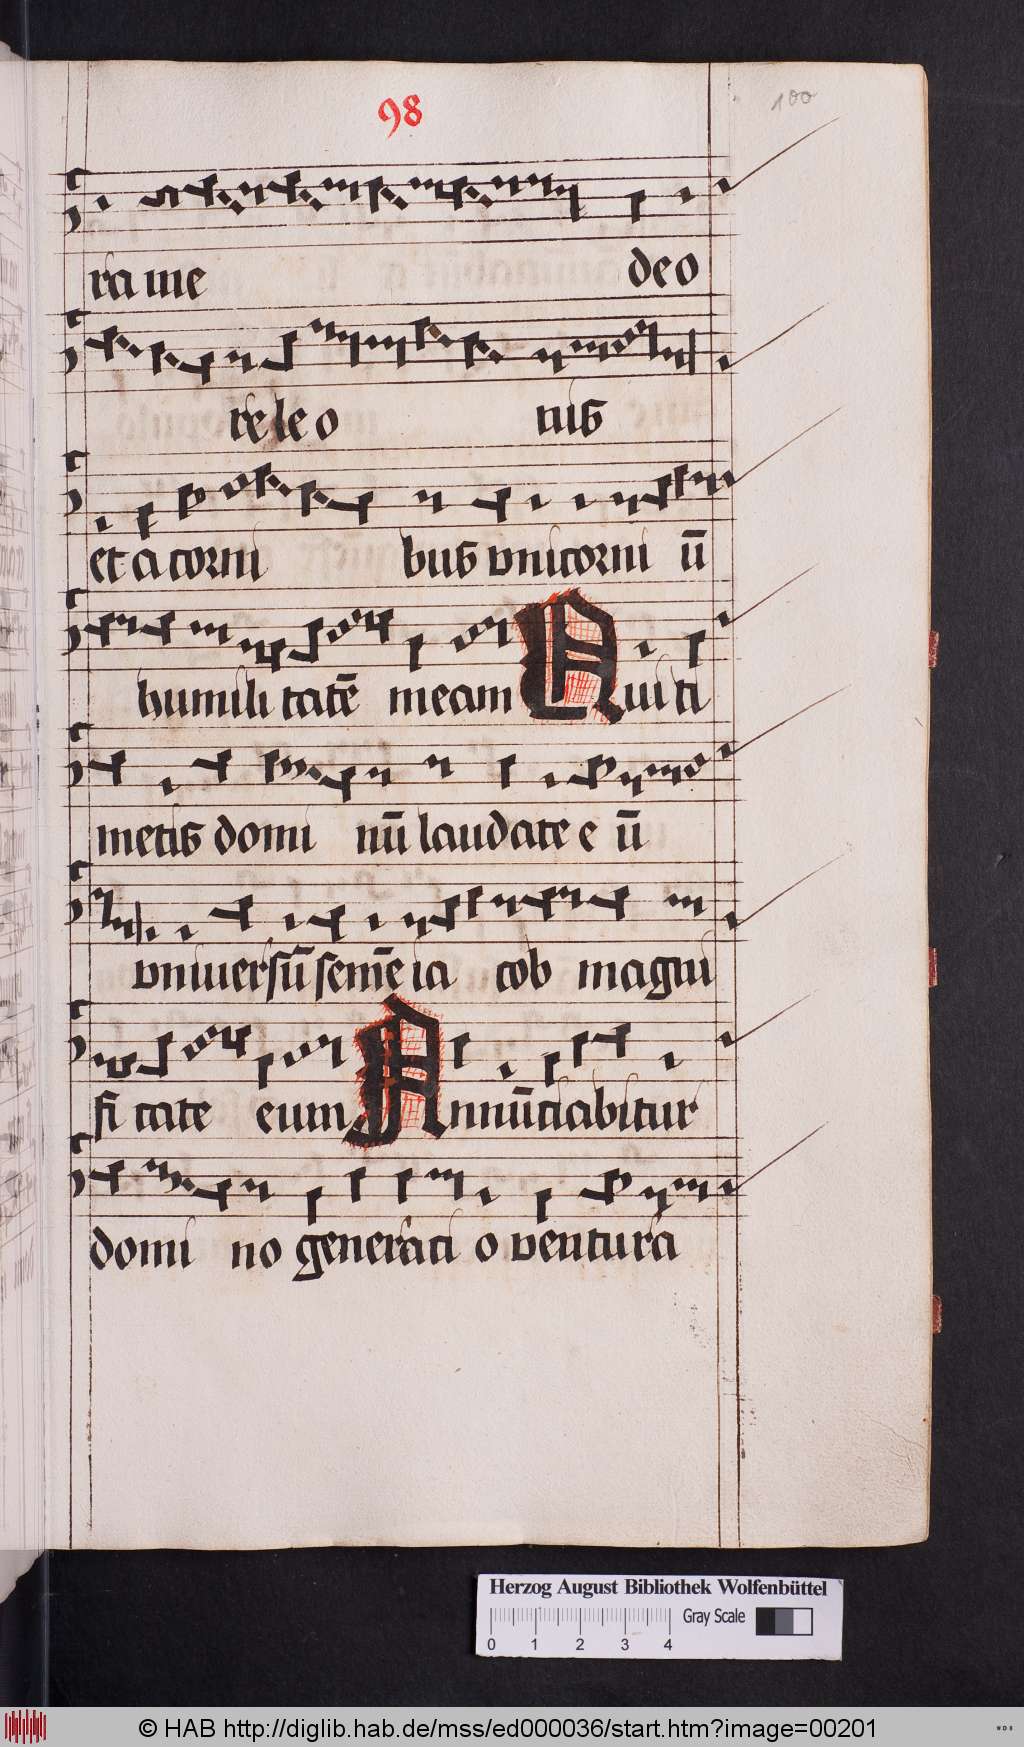 98
100
ra me de o
re le o nis
et a corni bus vnicorni ū
humili tatē meam Qui ti
metis domi nū laudate e ū
vniuersū semē ia cob magni
fi cate eum Annūciabitur
domi no generati o ventura
Herzog August Bibliothek Wolfenbüttel
Gray Scale
0 1 2 3 4
© HAB http://diglib.hab.de/mss/ed000036/start.htm?image=00201